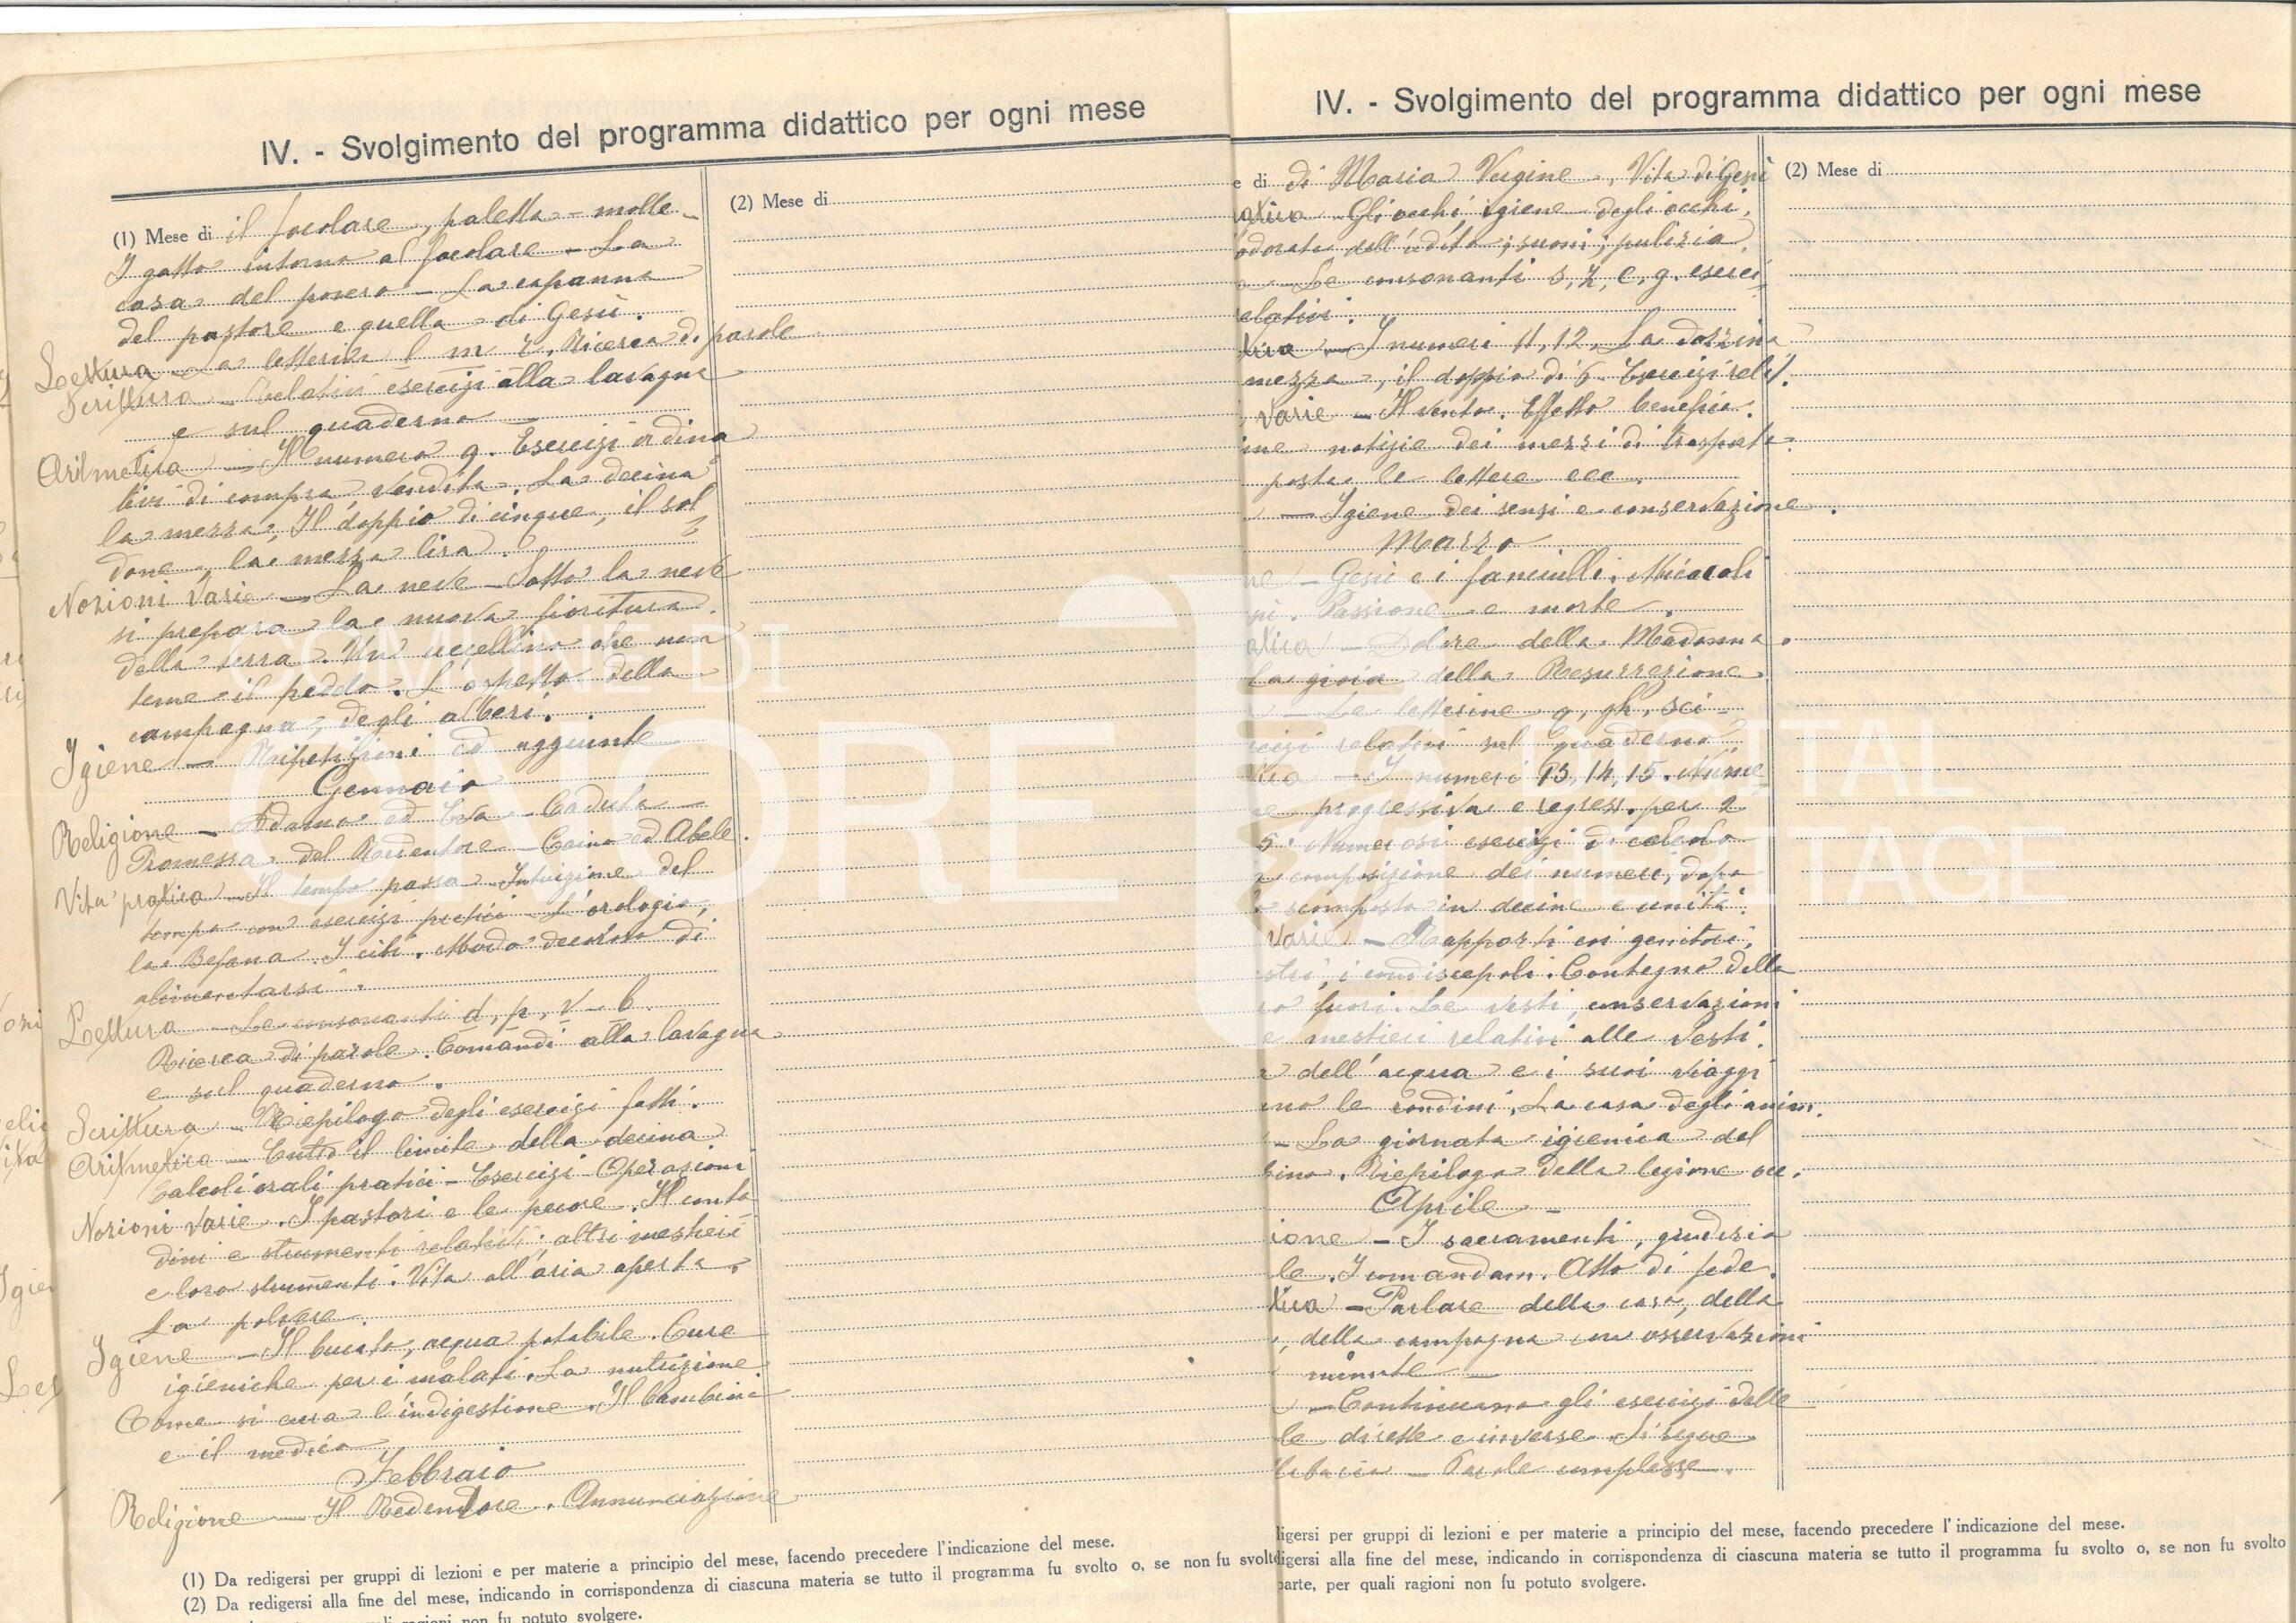 IV. - Svolgimento del programma didattico per ogni mese
(1) Mese di il focolare, paletta - molle
(2) Mese di
I gatto intorno al focolare - La
casa del povero - La capanna
del pastore e quella di Gesù.
Lettura - La letterina l m r. Ricerca di parole
Scrittura - Relativi esercizi alla lavagna
e sul quaderno
Aritmetica - Il numero 9. Esercizi ordina
tivi di compra vendita. La decina
la mezza, Il doppio di cinque, il sol
done, la mezza lira.
Nozioni Varie - La neve - Sotto la neve
si prepara la nuova fioritura
della terra. Un uccellino che non
teme il freddo. L'aspetto della
campagna, degli alberi.
Igiene - Ripetizioni ed aggiunte
Gennaio
Religione - Adamo ed Eva - Caduta -
Promessa del Redentore - Caino ed Abele.
Vita pratica - Il tempo passa - Intuizione del
tempo con esercizi pratici - L'orologio,
la Befana. I cibi. Modo decoroso di
alimentarsi.
Lettura - Le consonanti d, p, v - b
Ricerca di parole. Comandi alla lavagna
e sul quaderno.
Scrittura - Riepilogo degli esercizi fatti.
Aritmetica - Entro il limite della decina
Calcoli orali pratici - Esercizi - Operazioni
Nozioni varie. I pastori e le pecore. Il conta
dini e strumenti relativi; altri mestieri
e loro strumenti. Vita all'aria aperta.
La polvere.
Igiene - Il bucato, acqua potabile. Cure
igieniche per i malati. La nutrizione
Come si cura l'indigestione. Il bambini
e il medico
Febbraio
Religione - Il Redentore. Annunciazione
(1) Da redigersi per gruppi di lezioni e per materie a principio del mese, facendo precedere l'indicazione del mese.
(2) Da redigersi alla fine del mese, indicando in corrispondenza di ciascuna materia se tutto il programma fu svolto o, se non fu svolto
ragioni non fu potuto svolgere.
IV. - Svolgimento del programma didattico per ogni mese
e di di Maria Vergine, Vita di Gesù
(2) Mese di
atica - Gli occhi, igiene degli occhi,
odorato dell'udito; suoni; pulizia.
- Le consonanti s, z, c, g. eserci
relativi.
tica - I numeri 11, 12, La dozzina
mezza, il doppio di 6. Esercizi relat.
Varie - Il vento. Effetto benefico.
ime notizie dei mezzi di trasporto.
posta le lettere ecc.
- Igiene dei sensi e conservazione.
Marzo
ne - Gesù e i fanciulli. Miracoli
Passione e morte.
atica - Dolore della Madonna.
La gioia della Resurrezione.
- Le letterine q, gh, sci -
rcizi relativi sul quaderno
tica - I numeri 13, 14, 15. Nume
ne progressiva e regress. per 2
5. Numerosi esercizi di calcolo
e composizione dei numeri, dopo
scomposto in decine e unità.
Varie - Rapporti coi genitori,
stri, i condiscepoli. Contegno della
fuori. Le vesti, conservazioni
e mestieri relativi alle vesti.
dell'acqua e i suoi viaggi
no le rondini, La casa degli anim.
- La giornata igienica del
bino. Riepilogo della lezione ecc.
Aprile -
ione - I sacramenti, giudizio
le. I comandam. Atto di fede.
tica - Parlare della casa, della
, della campagna con osservazioni
minute -
- Continuano gli esercizi delle
le dirette e inverse. Si segue
- Parole complesse.
ligersi per gruppi di lezioni e per materie a principio del mese, facendo precedere l'indicazione del mese.
digersi alla fine del mese, indicando in corrispondenza di ciascuna materia se tutto il programma fu svolto o, se non fu svolto
parte, per quali ragioni non fu potuto svolgere.
CUORE
DIGITAL
HERITAGE